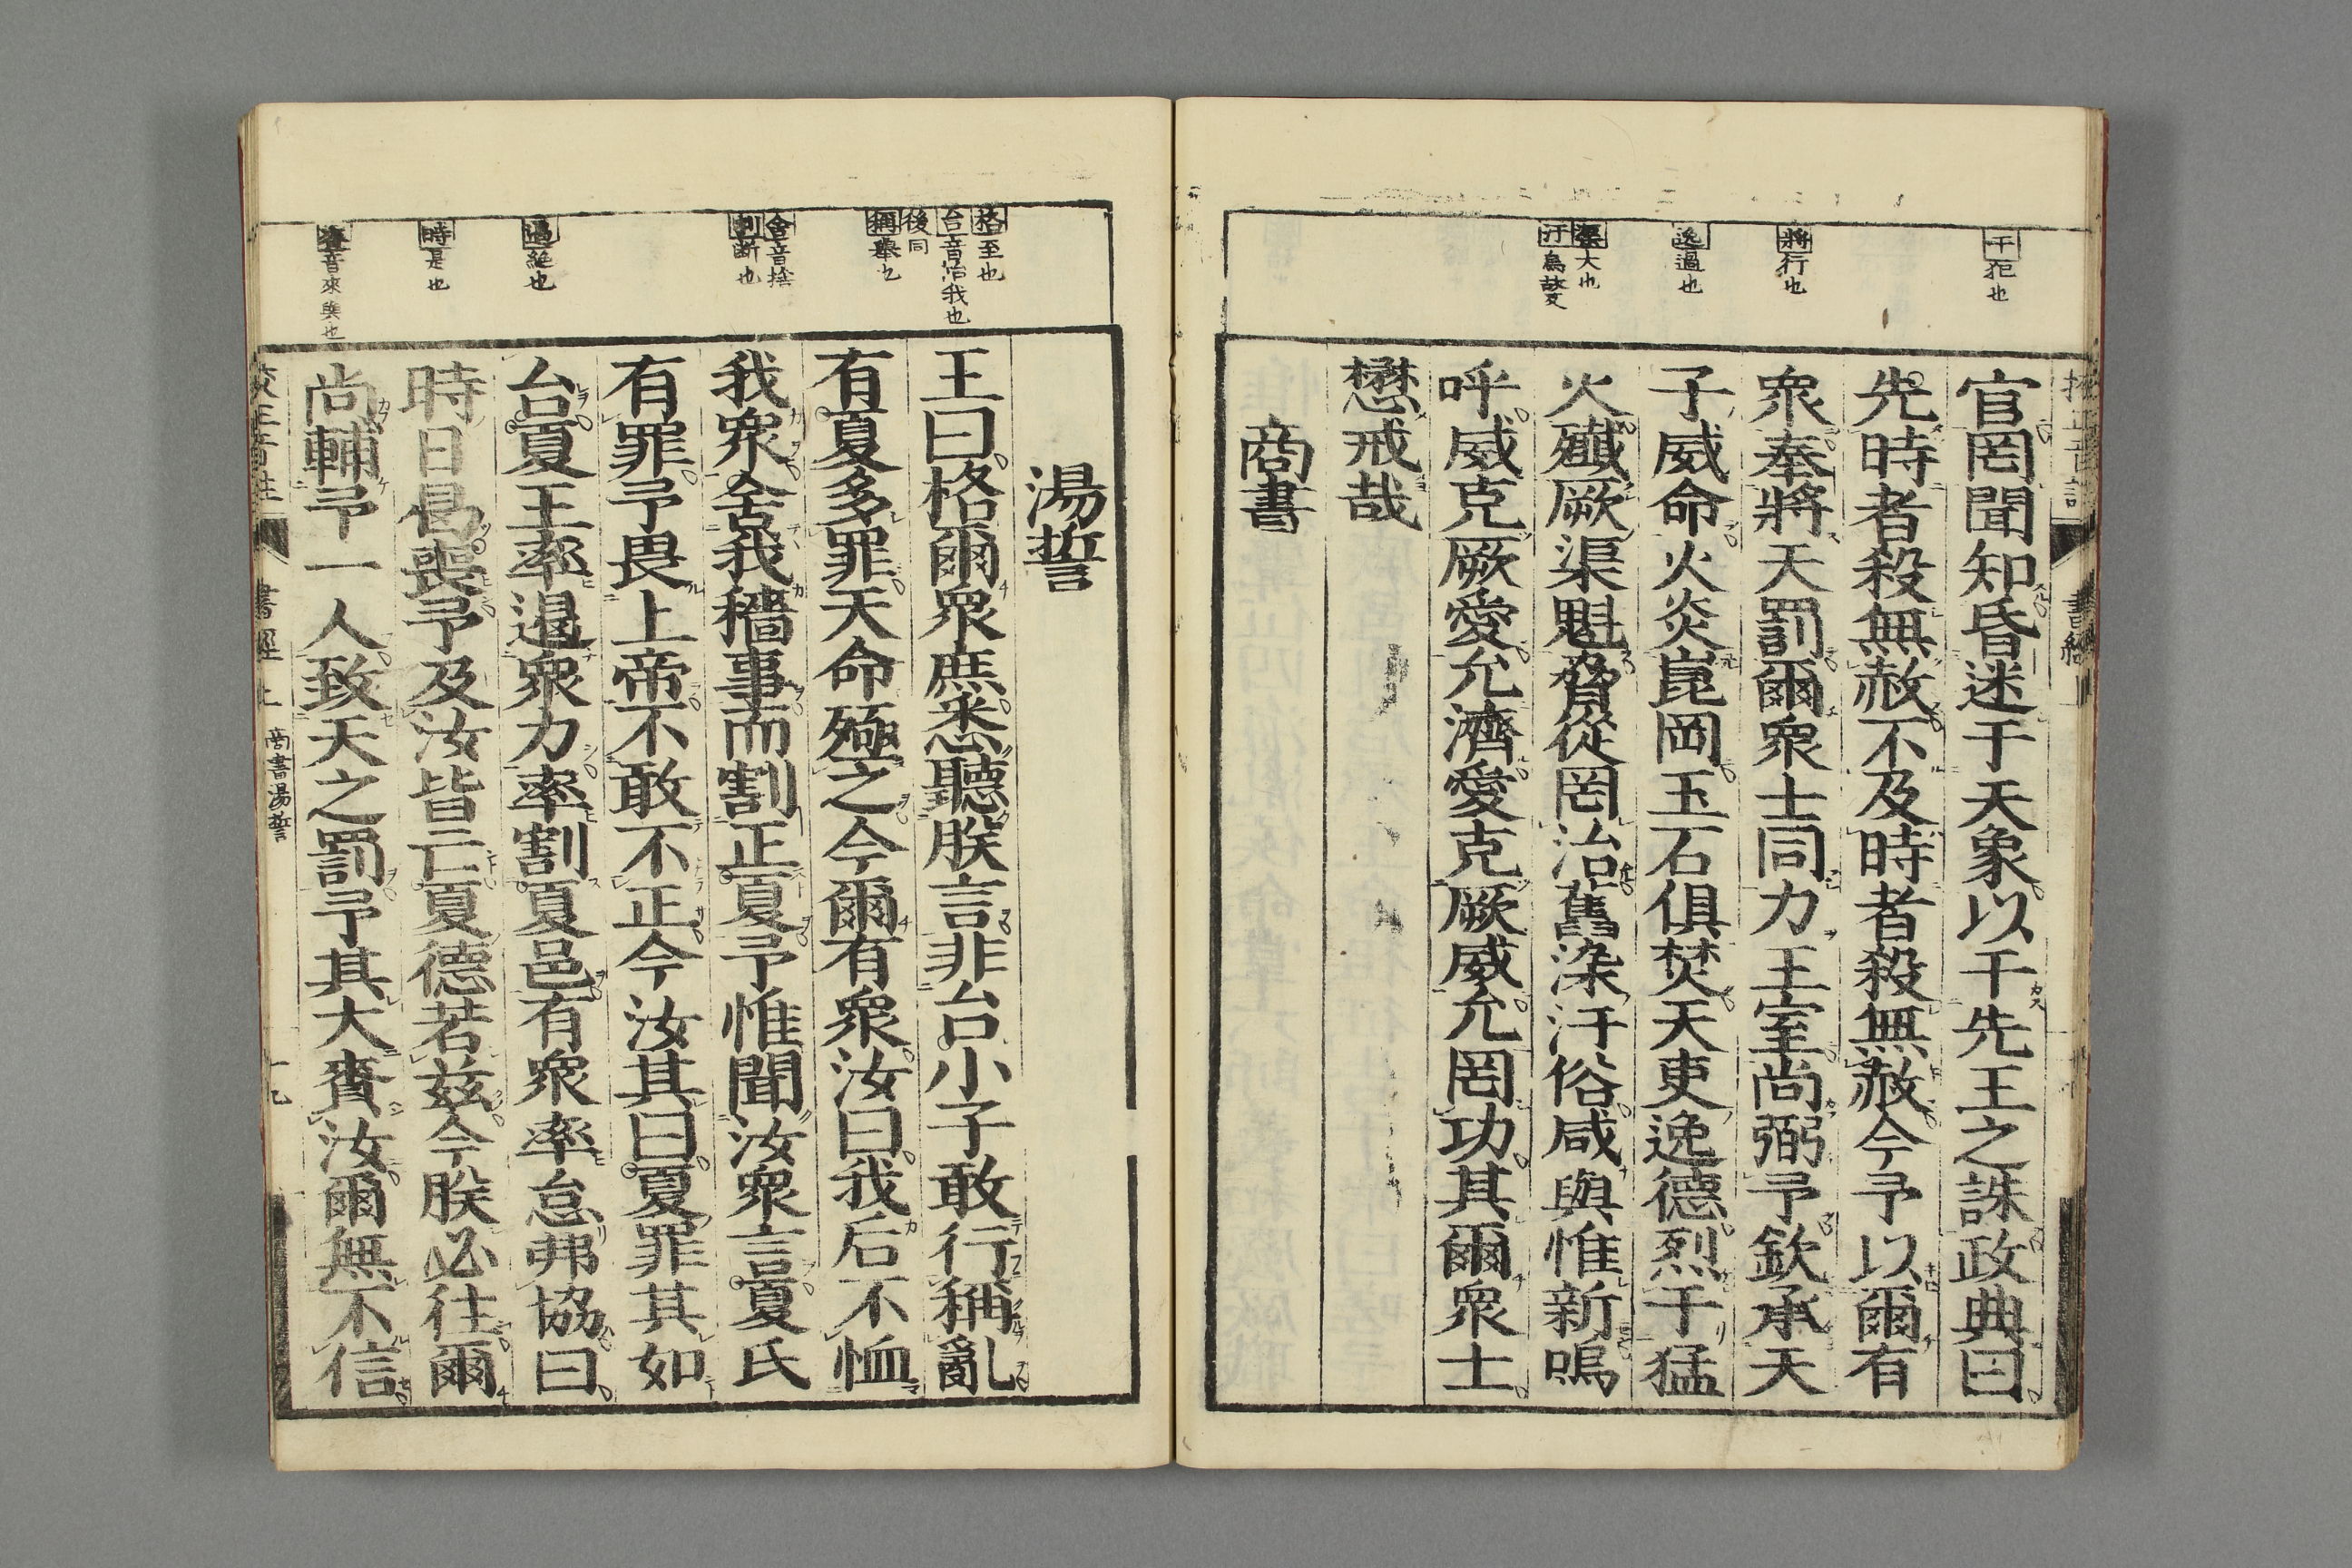 干犯也
將行也
逸過也
大也
汙烏故反
官罔聞知昏迷于天象以干先王之誅政典曰
先時者殺無赦不及時者殺無赦今予以爾有
衆奉將天罰爾衆士同力王室尚弼予欽承天
子威命火炎崑岡玉石俱焚天吏逸德烈于猛
火殲厥渠魁脅從罔治舊染汙俗咸與惟新嗚
呼威克厥愛允濟愛克厥威允罔功其爾衆士
懋戒哉
商書
格至也
台音怡我也
後同
稱舉也
舍音捨
割斷也
遏絕也
時是也
賚音來與也
湯誓
王曰格爾衆庶悉聽朕言非台小子敢行稱亂
有夏多罪天命殛之今爾有衆汝曰我后不恤
我衆舍我穡事而割正夏予惟聞汝衆言夏氏
有罪予畏上帝不敢不正今汝其曰夏罪其如
台夏王率遏衆力率割夏邑有衆率怠弗協曰
時日曷喪予及汝皆亡夏德若茲今朕必往爾
尚輔予一人致天之罰予其大賚汝爾無不信
書經 上 商書湯誓